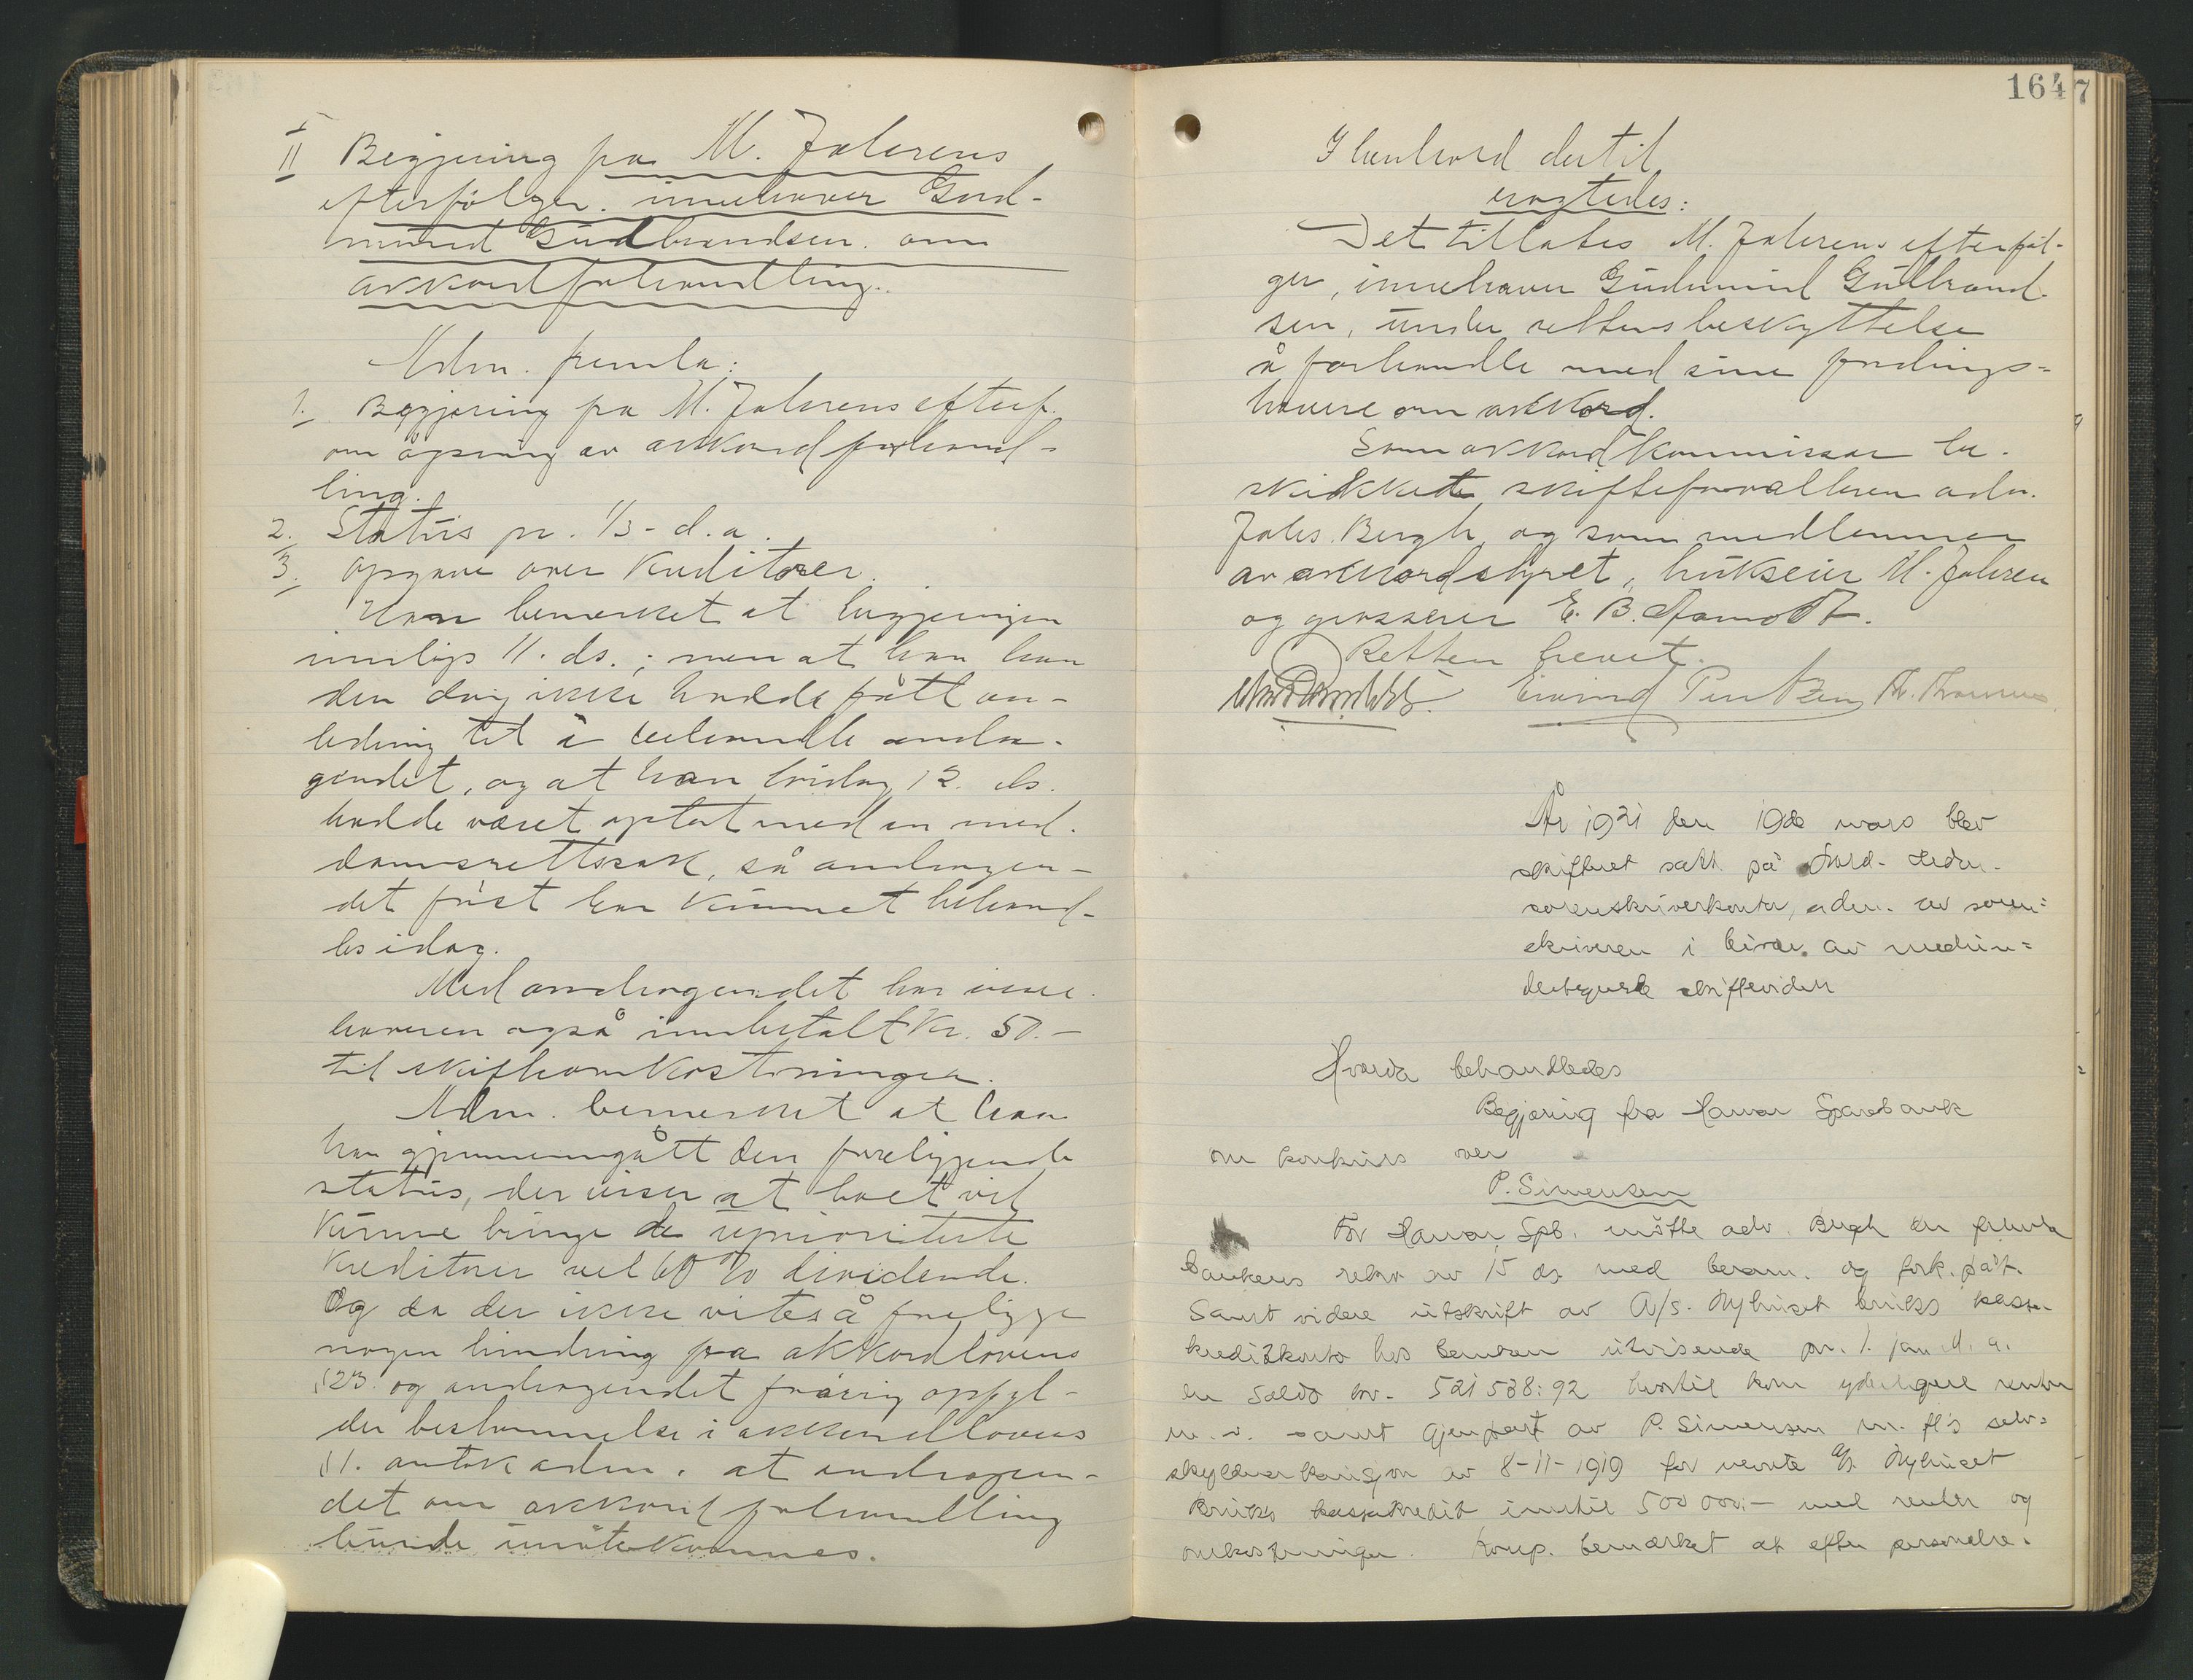 II Begjæring fra M. Johrens
efterfölger. innehaver Gud-
mund Gudbrandsen. om
akkordforhandling.
Adm. fremla:
1. Begjæring fra M. Johrens efterf.
om åpning av akkordforhand-
ling.
2. Status pr. 1/3 - d.a.
3. Opgave over Kreditorer.
Han bemerket at begjæringen
innløp 11. ds.; men at han
den dag ikke hadde fått an-
ledning til å behandle andra-
gendet, og at han lördag 12. ds.
hadde været optat med en med-
domsrettssak, så andragen-
det først har kunnet behand-
les idag.
Med andragendet har inne-
haveren også innbetalt Kr. 50.-
til skifteomkostninger.
Adm. bemerket at han
har gjennemgått den foreliggende
status, der viser at boet vil
kunne bringe de uprioriterte
Kreditorer vel 60 % dividende.
Og da der ikke vites å foreligge
nogen hindring fra akkordlovens
§ 23. og andragendet forøvrig opfyl-
der bestemmelse i akkordlovens
§ 1. antok adm. at andragen-
det om akkordforhandling
burde imötekommes.
164
7
I henhold dertil
eragtedes:
Det tillates M. Johrens efterföl-
ger, innehaver Gudmund Gulbrand-
sen, under rettens beskyttelse
å forhandle med sine fordrings-
havere om akkord.
Som akkordkommissær be-
skikkedt skifteforvalteren adv.
Johs. Bergh og som medlemmer
av akkordstyret, brukseier M. Johren
og grosserer E. B. Aamodt.
Retten hevet.
Eivind Pentzen
År 1921 den 19de mars blev
skifteret satt på Nord-Heden-
sorenskriverkontor, adm. av soren-
skriveren i bivær. av medun-
dertegnede skiftevidner
Hvorda behandledes
Begjæring fra Hamar Sparebank
om konkurs over
P. Simensen
For Hamar Spb. møtte adv. Bergh der fremla
bankens rekv. av 15 ds. med beram. og fork. påt.
Samt videre utskrift av A/s. Nyhuset bruks kasse-
kreditkonto hos banken utvisende pr. 1. jan d. a.
en Saldo kr. 521538:92 hvortil kom yderligere renter
m.v. samt Gjenpart av P. Simensen m. fl's selv-
skyldnerkausjon av 8-11-1919 for nevnte A/s Nyhuset
Bruks kassekredit inntil 500 000.- med renter og
omkostninger. Komp. bemærket at efter personelle.